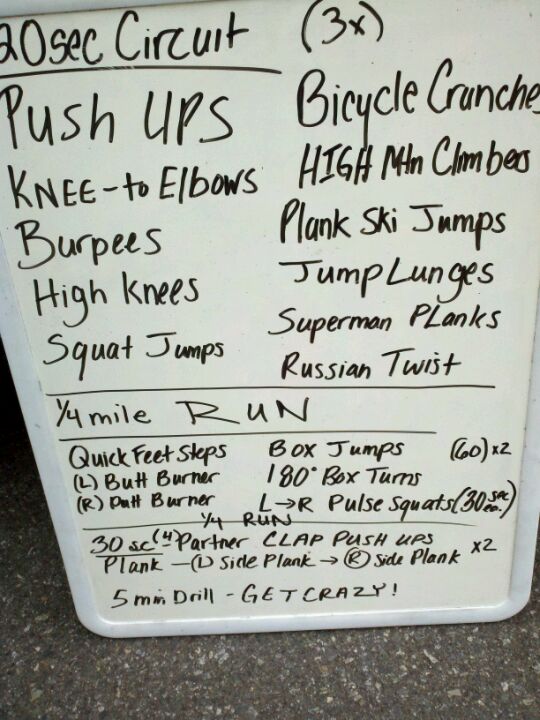 20sec Circuit (3x)
Push UPS
KNEE-to Elbows
Burpees
High Knees
Squat Jumps
Bicycle Crunche
HIGH Mtn Climbers
Plank Ski Jumps
Jump Lunges
Superman PLanks
Russian Twist
1/4 mile RUN
Quick Feet Steps Box Jumps (60) x2
(L) Butt Burner 180° Box Turns
(R) Butt Burner L→R Pulse Squats (30 sec ea.)
1/4 RUN
30 sc (4) Partner CLAP PUSH UPS x2
Plank - (L) Side Plank → (R) Side Plank
5 min Drill - GET CRAZY!